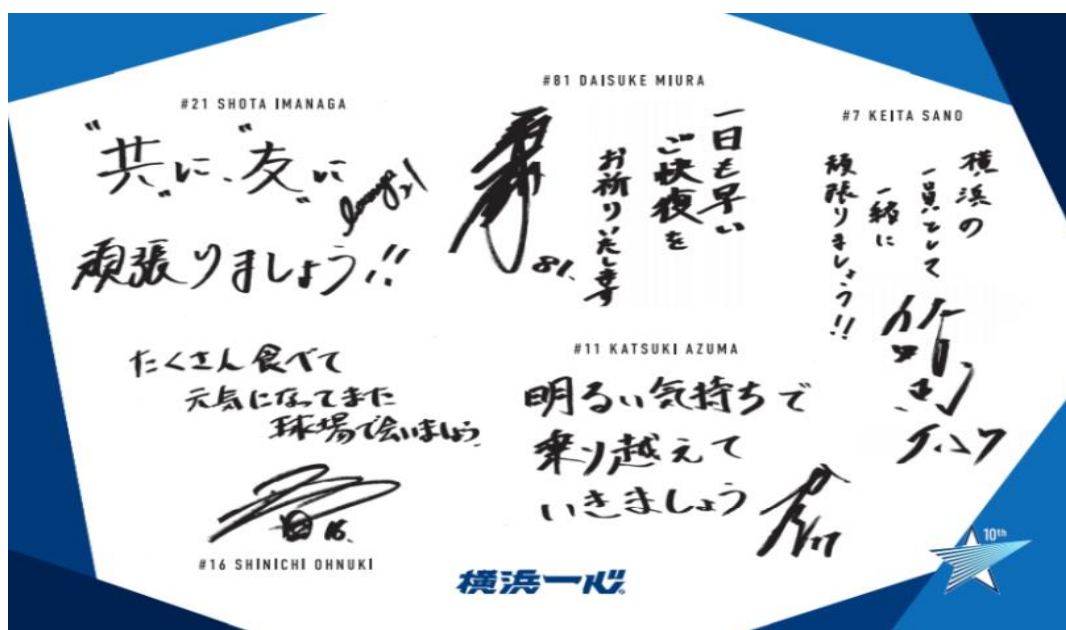 #21 SHOTA IMANAGA
"共"に、"友"に
imanaga 21
頑張りましょう!!
#81 DAISUKE MIURA
一日も早い
ご快復を
お祈りいたします
81.
#7 KEITA SANO
横浜の
一員として
一緒に
頑張りましょう!!
たくさん食べて
元気になってまた
球場で会いましょう
16.
#16 SHINICHI OHNUKI
#11 KATSUKI AZUMA
明るい気持ちで
乗り越えて
いきましょう
横浜一心
10th